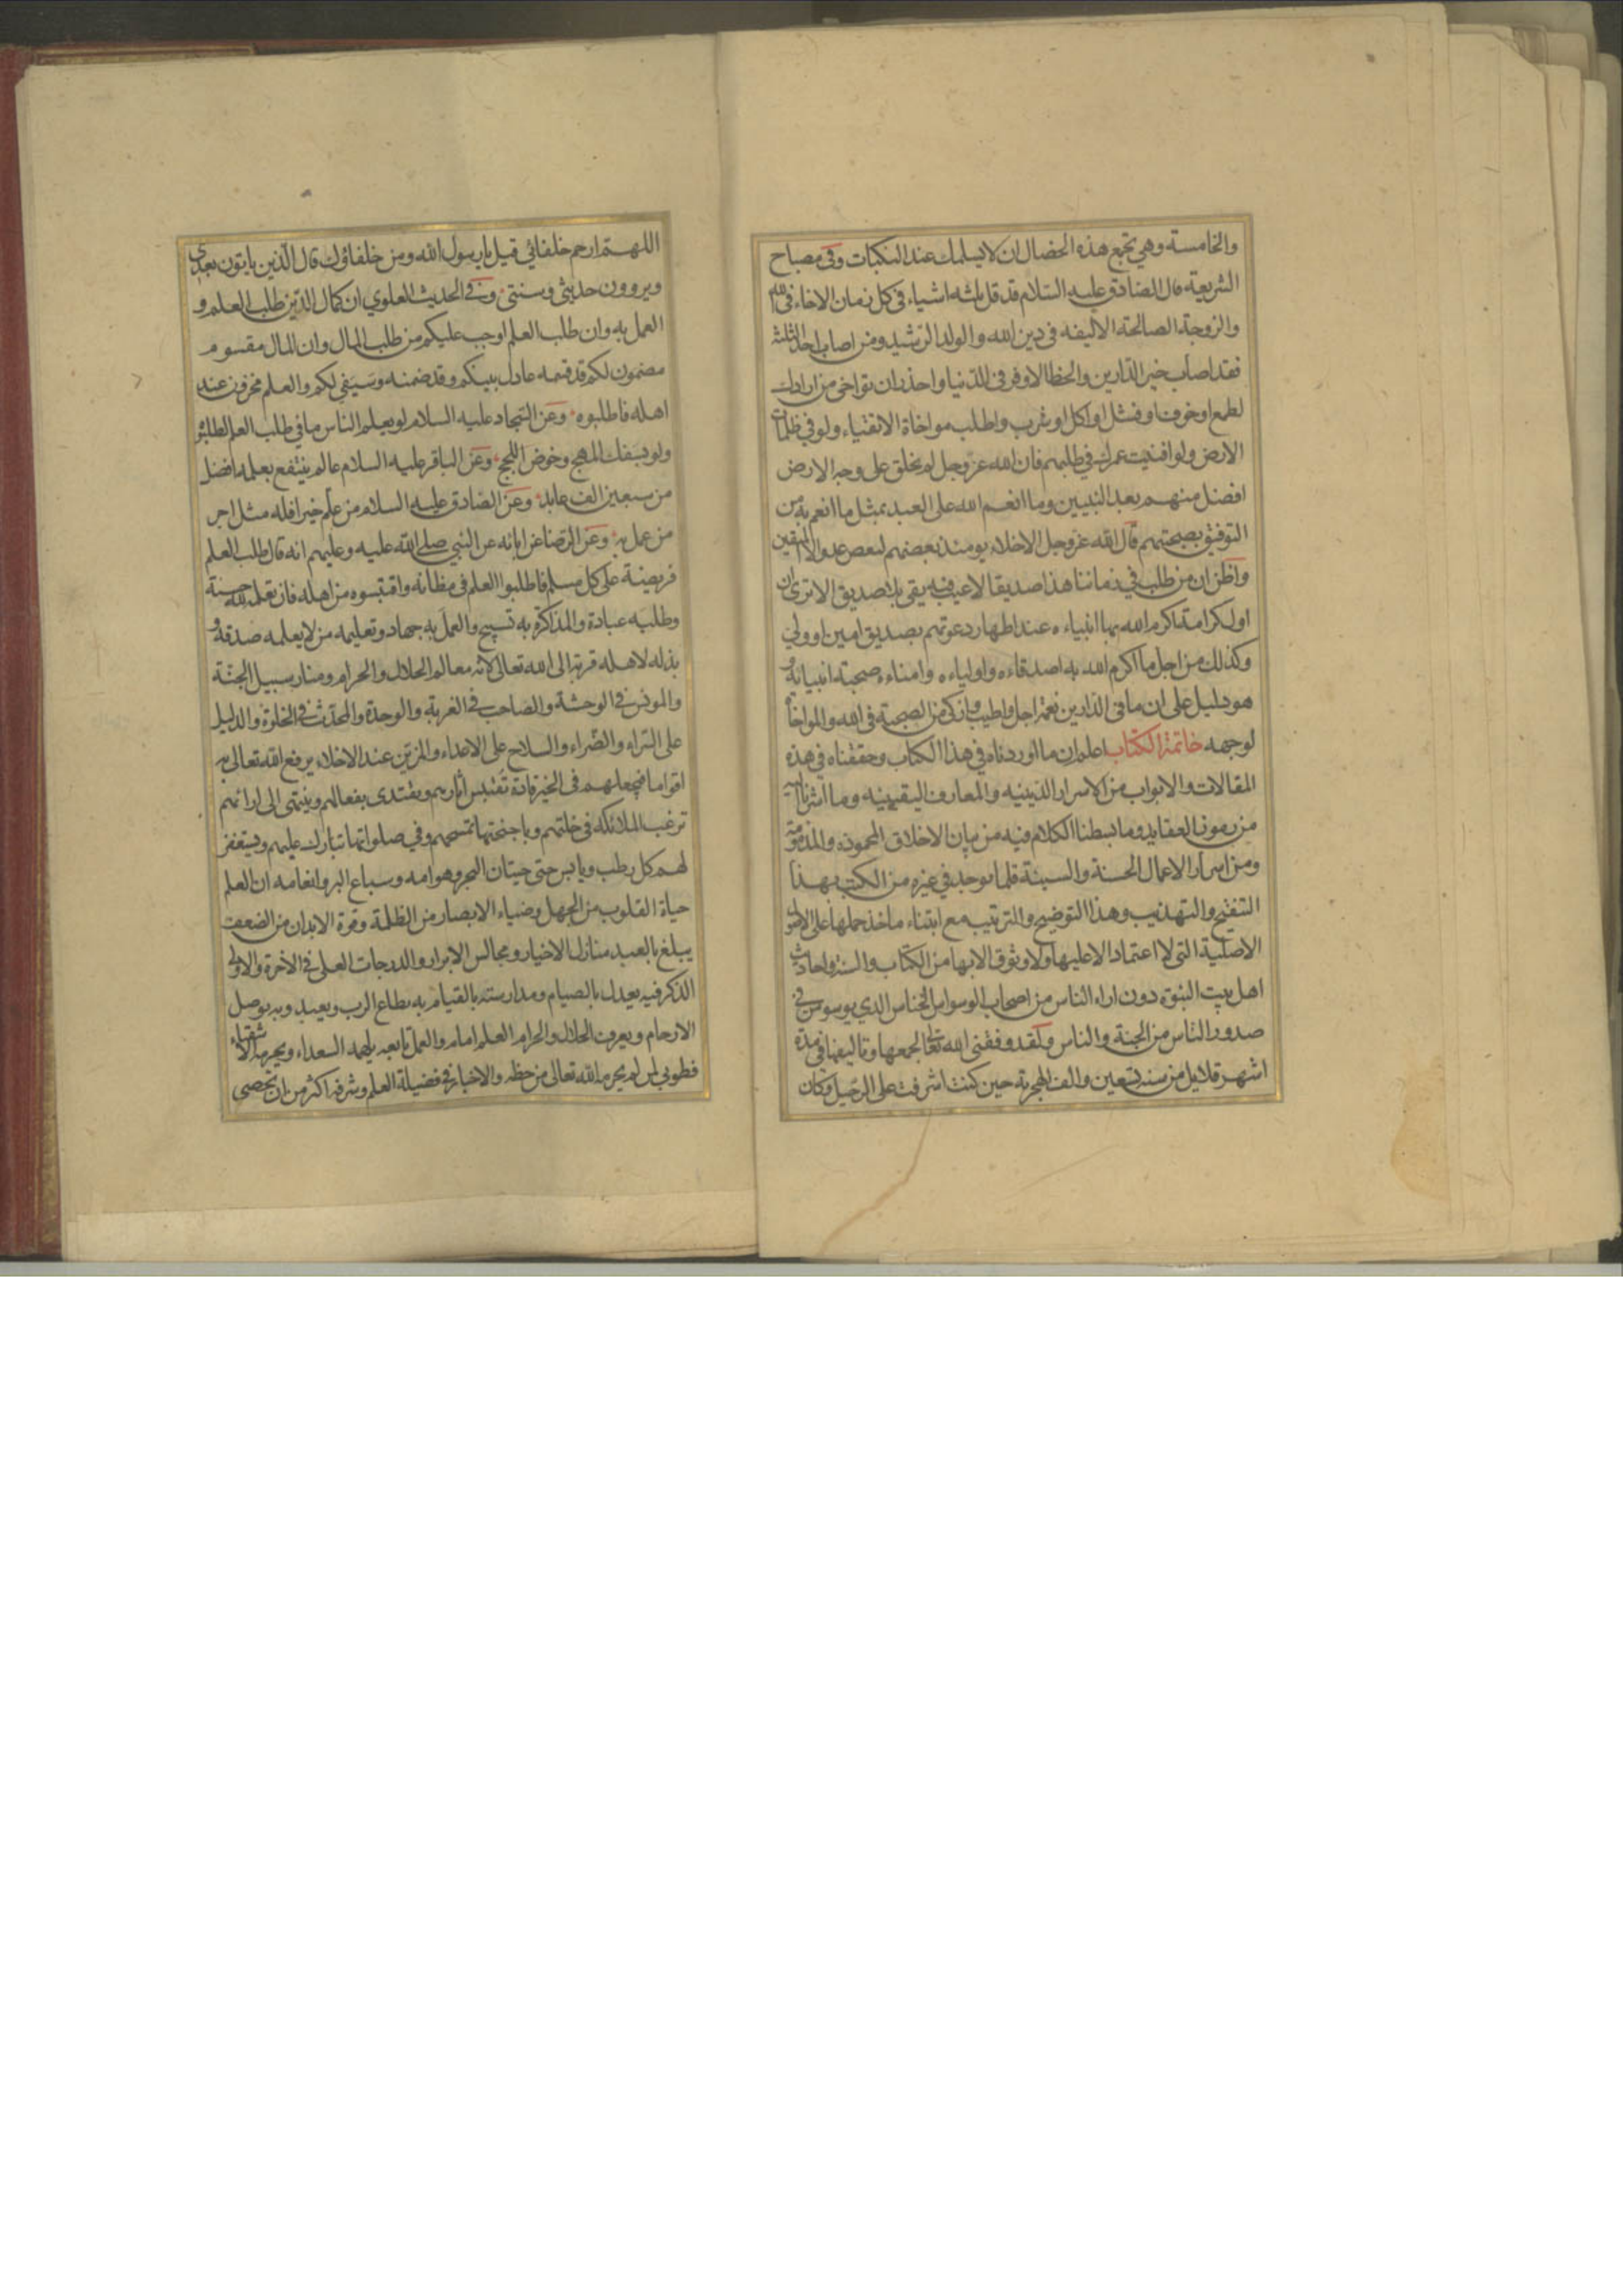 والخامسة وهي تجمع هذه الخصال ان لا يسلمك عند النكبات وفي مصباح
الشريعة قال الصادق عليه السلام قد قل ثلثه اشياء في كل زمان الاخاء في الله
والزوجة الصالحة الاليفه في دين الله والولد الرشيد ومن اصاب احد الثلثة
فقد اصاب خير الدارين والحظ الاوفر في الدنيا واحذر ان تواخي من ارادك
لطمع او خوف او فشل او اكل او شرب واطلب مواخاة الاتقياء ولو في ظلمات
الارض ولو افنيت عمرك في طلبهم فان الله عز وجل لم يخلق على وجه الارض
افضل منهم بعد النبيين وما انعم الله على العبد بمثل ما انعم به من
التوفيق بصحبتهم قال الله عز وجل الاخلاء يومئذ بعضهم لبعض عدو الا المتقين
واظن ان من طلب في زماننا هذا صديقا لا عيب فيه بقي بلا صديق الا ترى ان
اول كرامة اكرم الله بها انبياءه عند اظهار دعوتهم بصديق امين او ولي
وكذلك من اجل ما اكرم الله به اصدقاءه واولياءه وامناءه صحبة انبيائه و
هو دليل على ان ما في الدارين نعمة اجل واطيب وازكى من الصحبة في الله والمواخاة
لوجهه خاتمة الكتاب اعلم ان ما اوردناه في هذا الكتاب وحققناه في هذه
المقالات والابواب من الاسرار الدينيه والمعارف اليقينيه وما اشرنا اليه
من رموز العقايد وما بسطنا الكلام فيه من بيان الاخلاق المحموده والمذمومة
ومن اسرار الاعمال الحسنة والسيئة قلما يوجد في غيره من الكتب بهذا
التنقيح والتهذيب وهذا التوضيح والترتيب مع ابتناء ماخذ جملها على الاصول
الاصلية التي لا اعتماد الا عليها ولا وثوق الا بها من الكتاب والسنة واحاديث
اهل بيت النبوة دون اراء الناس من اصحاب الوسواس الخناس الذي يوسوس في
صدور الناس من الجنة والناس ولقد وفقني الله تعالى لجمعها وتاليفها في مدة
اشهر قلايل من سنه تسعين والف الهجرية حين كنت اشرفت على الرحيل وكان
اللهم ارحم خلفائي قيل يا رسول الله ومن خلفاؤك قال الذين ياتون بعدي
ويروون حديثي وسنتي وفي الحديث العلوي ان كمال الدين طلب العلم و
العمل به وان طلب العلم اوجب عليكم من طلب المال وان المال مقسوم
مضمون لكم قد قسمه عادل بينكم وقد ضمنه وسيفي لكم والعلم مخزون عند
اهله فاطلبوه وعن السجاد عليه السلام لو يعلم الناس ما في طلب العلم لطلبوه
ولو بسفك المهج وخوض اللجج وعن الباقر عليه السلام عالم ينتفع بعلمه افضل
من سبعين الف عابد وعن الصادق عليه السلام من علم خيرا فله مثل اجر
من عمل به وعن الرضا عن ابائه عن النبي صلى الله عليه وعليهم انه قال طلب العلم
فريضة على كل مسلم فاطلبوا العلم في مظانه واقتبسوه من اهله فان تعلمه لله حسنة
وطلبه عبادة والمذاكرة به تسبيح والعمل به جهاد وتعليمه من لا يعلمه صدقة و
بذله لاهله قربة الى الله تعالى لانه معالم الحلال والحرام ومنار سبيل الجنة
والمونس في الوحشة والصاحب في الغربة والوحدة والمحدث في الخلوة والدليل
على السراء والضراء والسلاح على الاعداء والزين عند الاخلاء يرفع الله تعالى به
اقواما فيجعلهم في الخير قادة تقتبس آثارهم ويقتدى بفعالهم وينتهى الى ارائهم
ترغب الملائكة في خلتهم وباجنحتها تمسحهم وفي صلواتها تبارك عليهم ويستغفر
لهم كل رطب ويابس حتى حيتان البحر وهوامه وسباع البر وانعامه ان العلم
حياة القلوب من الجهل وضياء الابصار من الظلمة وقوة الابدان من الضعف
يبلغ بالعبد منازل الاخيار ومجالس الابرار والدرجات العلى في الآخرة والاولى
الذكر فيه يعدل بالصيام ومدارسته بالقيام به يطاع الرب ويعبد وبه يوصل
الارحام ويعرف الحلال والحرام العلم امام والعمل تابعه يلهمه السعداء ويحرمه الاشقياء
فطوبى لمن لم يحرمه الله تعالى من حظه والاخبار في فضيلة العلم وشرفه اكثر من ان تحصى